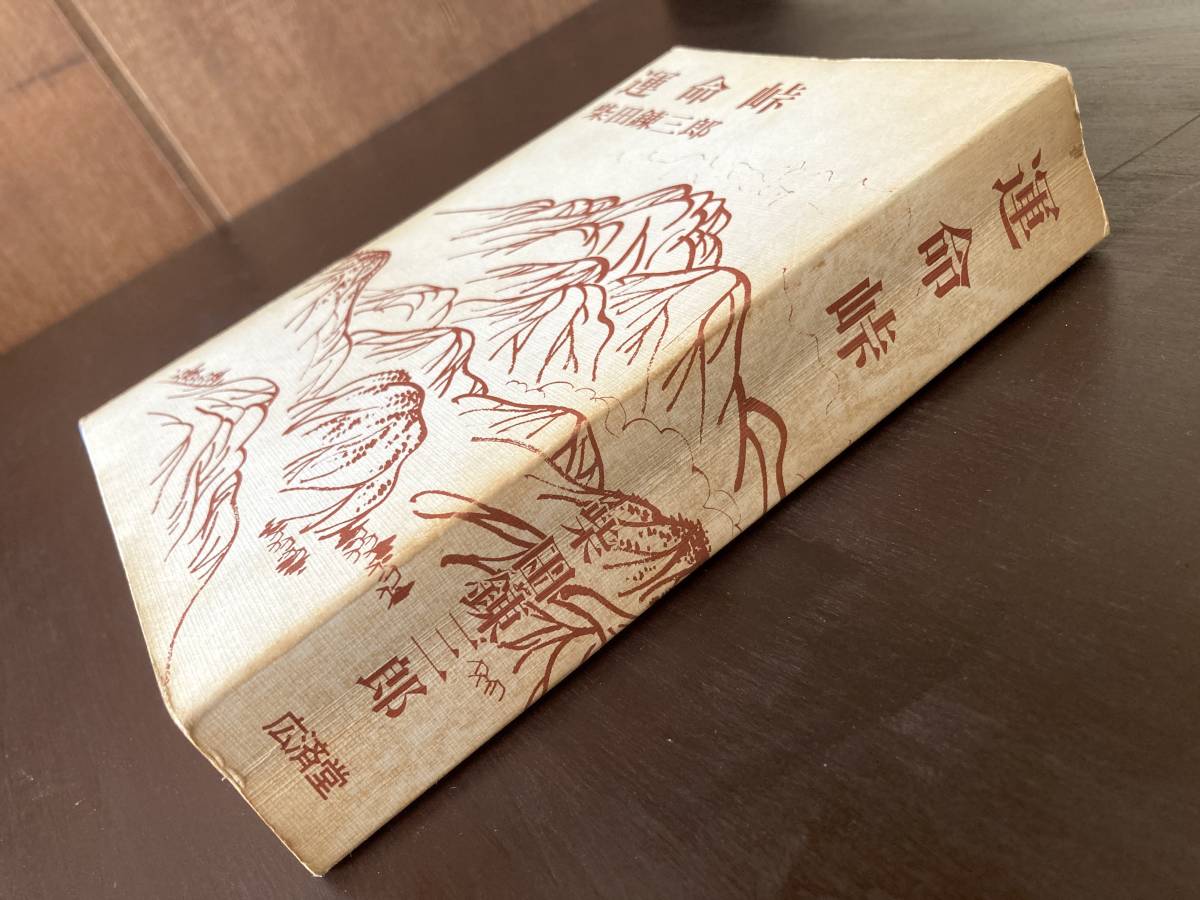 運命峠
柴田錬三郎
運命峠
柴田錬三郎
広済堂